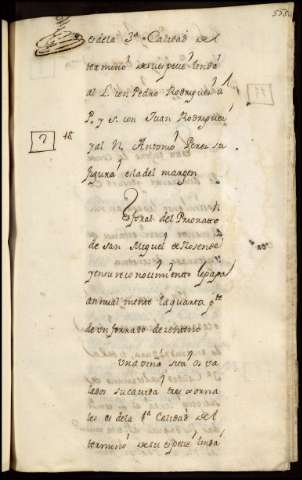 es dela 3ª Calidad del
termino de su especie linda
al L. con Pedro Rodriguez a
P. y S. con Juan Rodriguez
y al N. Antonio Perez su
figura es la del margen
Es foral del Priorato
de San Miguel de Rosende
y en su reconocimiento le paga
annualmente la quarta pte
de un ferrado de zenteno
Una viña sita en va
lados su cavida tres jorna
les es de la 1ª Calidad del
termino de su especie linda